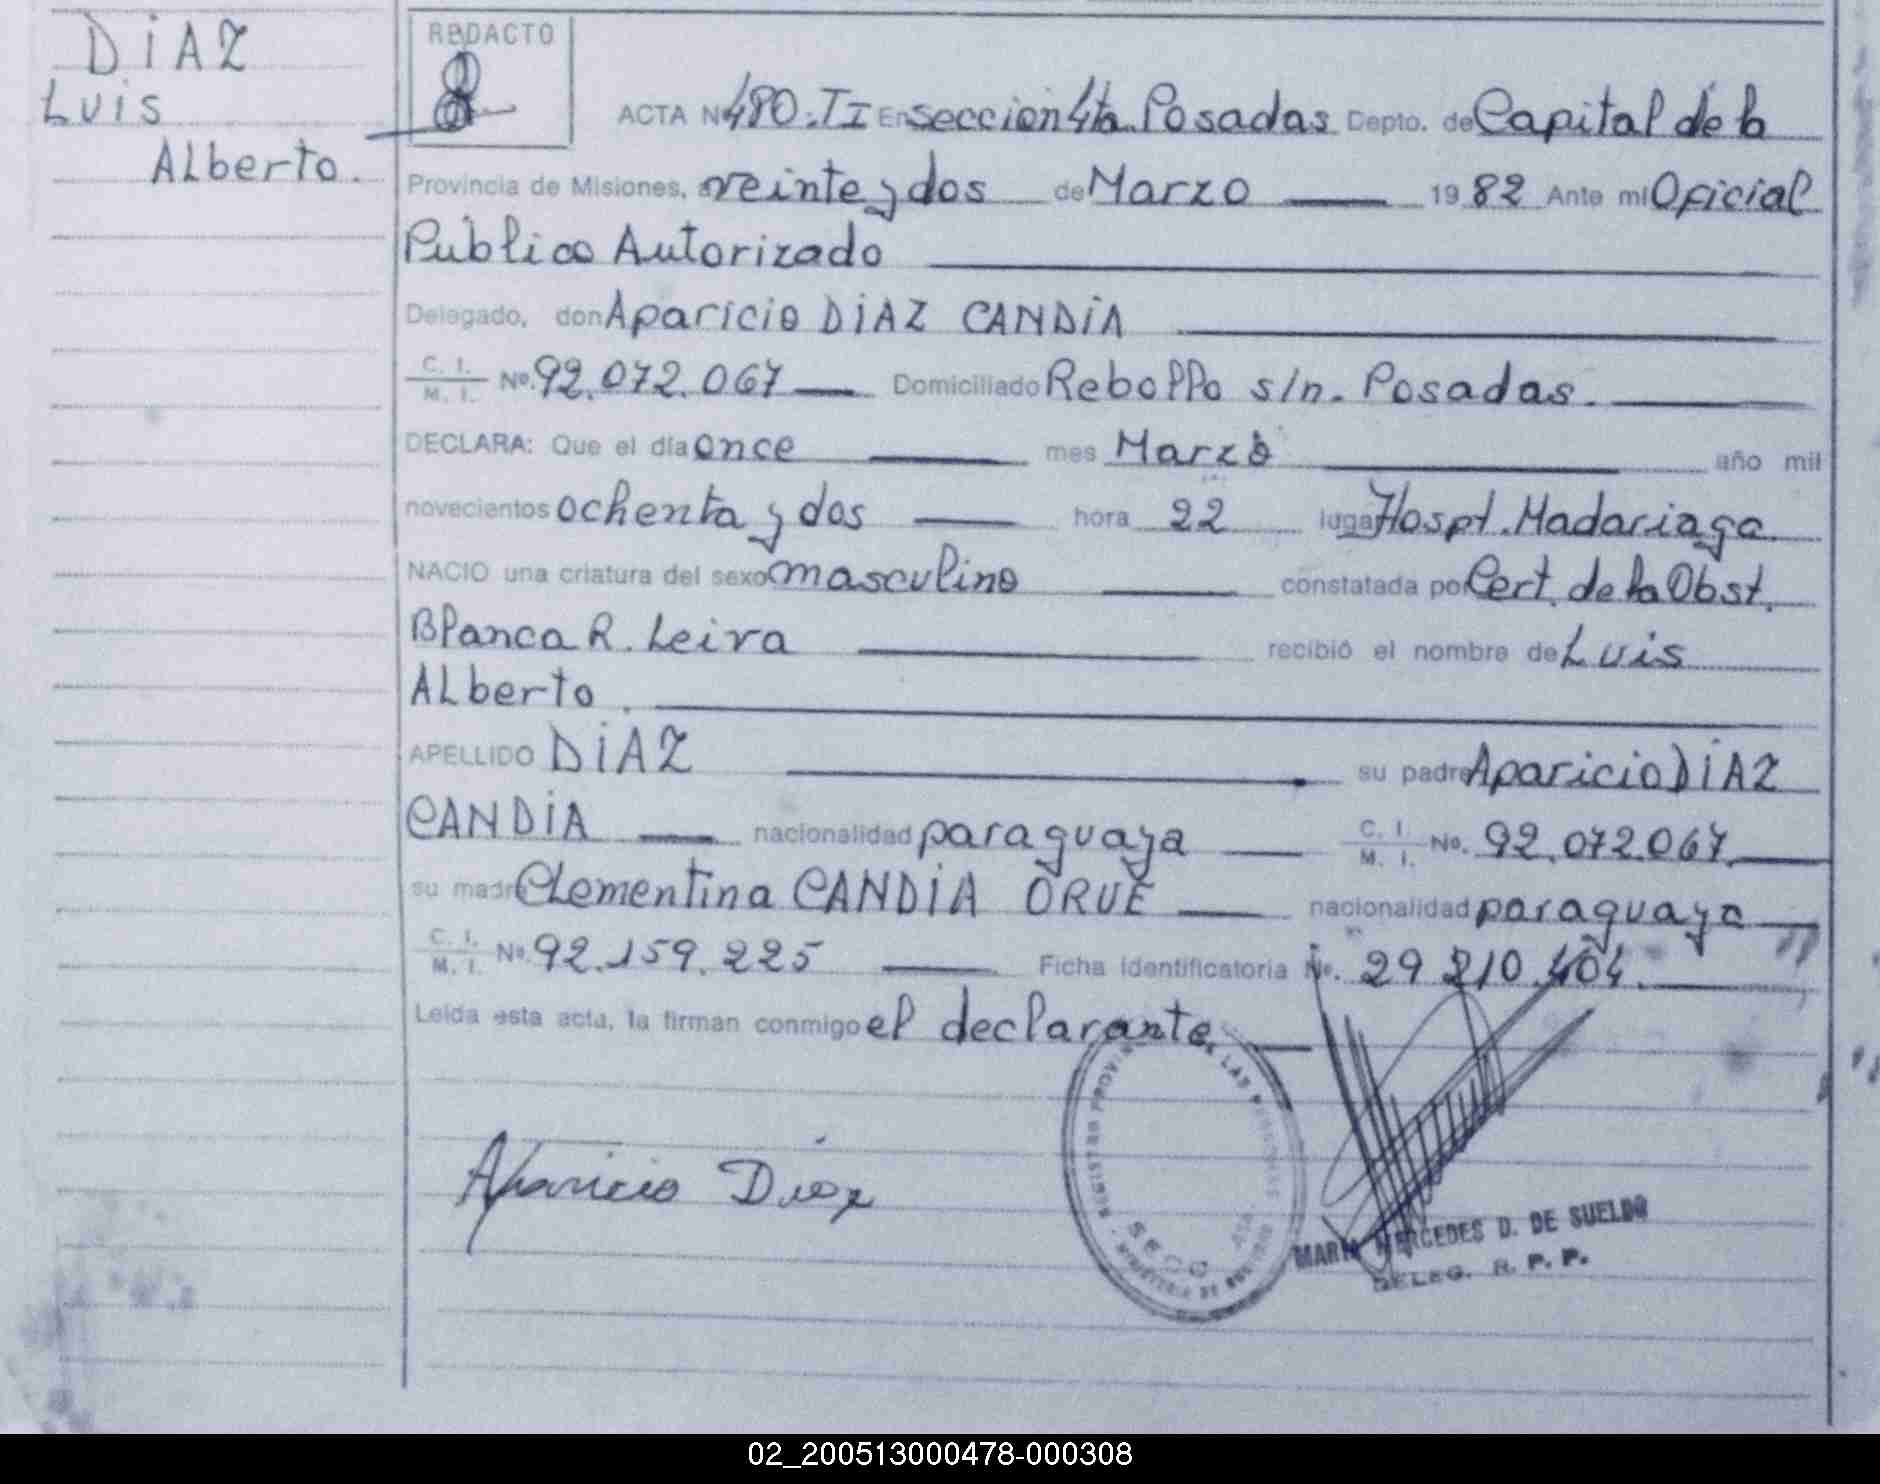 DIAZ
Luis
Alberto.
REDACTO
ACTA Nº 480. TI En seccion 4ta. Posadas Depto. de Capital de la
Provincia de Misiones, a veinte y dos de Marzo 1982 Ante mí Oficial
Público Autorizado
Delegado, don Aparicio DIAZ CANDIA
C. I. / M. I. Nº. 92.072.067 Domiciliado Rebollo s/n. Posadas.
DECLARA: Que el día once mes Marzo año mil
novecientos ochenta y dos hora 22 lugar Hospt. Madariaga.
NACIO una criatura del sexo masculino constatada por Cert. de la Obst.
Blanca R. Leiva recibió el nombre de Luis
Alberto.
APELLIDO DIAZ su padre Aparicio DIAZ
CANDIA nacionalidad paraguaya C. I. / M. I. Nº. 92.072.067.
su madre Clementina CANDIA ORUE nacionalidad paraguaya
C. I. / M. I. Nº. 92.159.225 Ficha identificatoria Nº. 29 210.404.
Leída esta acta, la firman conmigo el declarante.
Aparicio Diaz
REGISTRO PROVIN DE LAS PERSONAS
SECC
MINISTERIO DE GOBIERNO
MARIA MERCEDES D. DE SUELDO
DELEG. R. P. P.
02_200513000478-000308